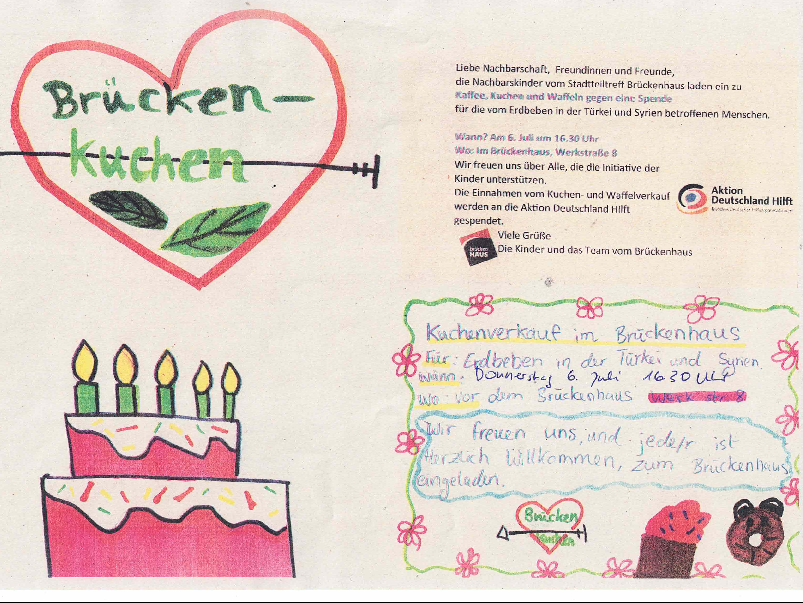 Brücken-
kuchen
Liebe Nachbarschaft, Freundinnen und Freunde,
die Nachbarskinder vom Stadtteiltreff Brückenhaus laden ein zu
Kaffee, Kuchen und Waffeln gegen eine Spende
für die vom Erdbeben in der Türkei und Syrien betroffenen Menschen.
Wann? Am 6. Juli um 16.30 Uhr
Wo: Im Brückenhaus, Werkstraße 8
Wir freuen uns über Alle, die die Initiative der
Kinder unterstützen.
Die Einnahmen vom Kuchen- und Waffelverkauf
werden an die Aktion Deutschland Hilft
gespendet.
Aktion
Deutschland Hilft
Viele Grüße
Die Kinder und das Team vom Brückenhaus
brücken
HAUS
Kuchenverkauf im Brückenhaus
Für: Erdbeben in der Türkei und Syrien.
wann: Donnerstag 6. Juli 16 30 Uhr
wo: vor dem Brückenhaus Werk str 8
Wir freuen uns, und jede/r ist
Herzlich Willkommen, zum Brückenhaus
eingeladen.
Brücken